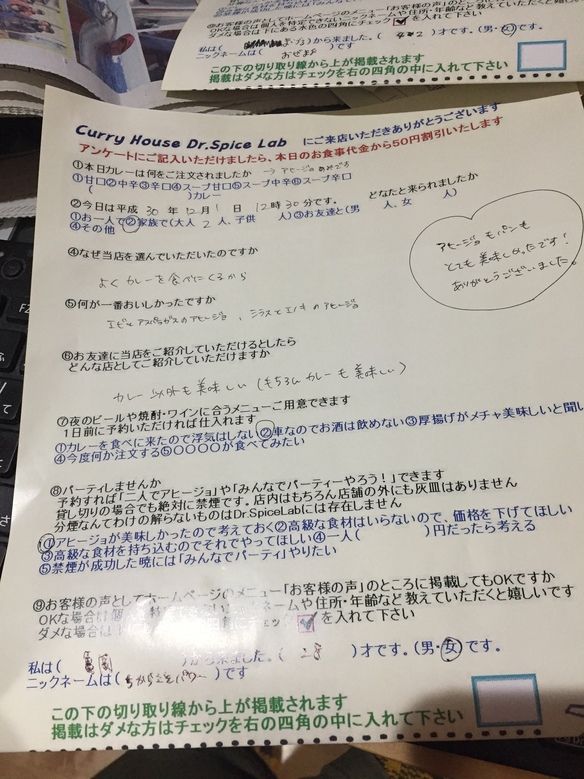 ⑨お客様の声としてホームページのメニュー「お客様の声」のところに掲載
OKな場合は個人を特定できないニックネームや住所・年齢など教えていただくと
ダメな場合は下にある水色の四角にチェック を入れて下さい
私は( から来ました。( 42 )才です。(男・女)です
ニックネームは( おぜよ )です
この下の切り取り線から上が掲載されます
掲載はダメな方はチェックを右の四角の中に入れて下さい
Curry House Dr.Spice Lab にご来店いただきありがとうございます
アンケートにご記入いただけましたら、本日のお食事代金から50円割引いたします
①本日カレーは何をご注文されましたか → アヒージョ
①甘口②中辛③辛口④スープ甘口⑤スープ中辛⑥スープ辛口
( )カレー
②今日は平成 30 年 12月 1 日 12時 30分です。 どなたと来られましたか
①お一人で②家族で(大人 2 人、子供 人)③お友達と(男 人、女 人)
④その他
アヒージョもパンも
とても美味しかったです!
ありがとうございました。
④なぜ当店を選んでいただいたのですか
よくカレーを食べにくるから
⑤何が一番おいしかったですか
エビとアスパラガスのアヒージョ、シラスとエノキのアヒージョ
⑥お友達に当店をご紹介していただけるとしたら
どんな店としてご紹介していただけますか
カレー以外も美味しい(もちろんカレーも美味しい)
⑦夜のビールや焼酎・ワインに合うメニューご用意できます
1日前に予約いただければ仕入れます
①カレーを食べに来たので浮気はしない②車なのでお酒は飲めない③厚揚げがメチャ美味しいと聞い
④今度何か注文する⑤〇〇〇〇が食べてみたい
⑧パーティしませんか
予約すれば「二人でアヒージョ」や「みんなでパーティーやろう!」できます
貸し切りの場合でも絶対に禁煙です。店内はもちろん店舗の外にも灰皿はありません
分煙なんてわけの解らないものはDr.SpiceLabには存在しません
①アヒージョが美味しかったので考えておく②高級な食材はいらないので、価格を下げてほしい
③高級な食材を持ち込むのでそれでやってほしい④一人( )円だったら考える
⑤禁煙が成功した暁には「みんなでパーティ」やりたい
⑨お客様の声としてホームページのメニュー「お客様の声」のところに掲載してもOKですか
OKな場合は個人を特定できないニックネームや住所・年齢など教えていただくと嬉しいです
ダメな場合は チェック を入れて下さい
私は( )から来ました。( 28 )才です。(男・女)です。
ニックネームは( )です
この下の切り取り線から上が掲載されます
掲載はダメな方はチェックを右の四角の中に入れて下さい